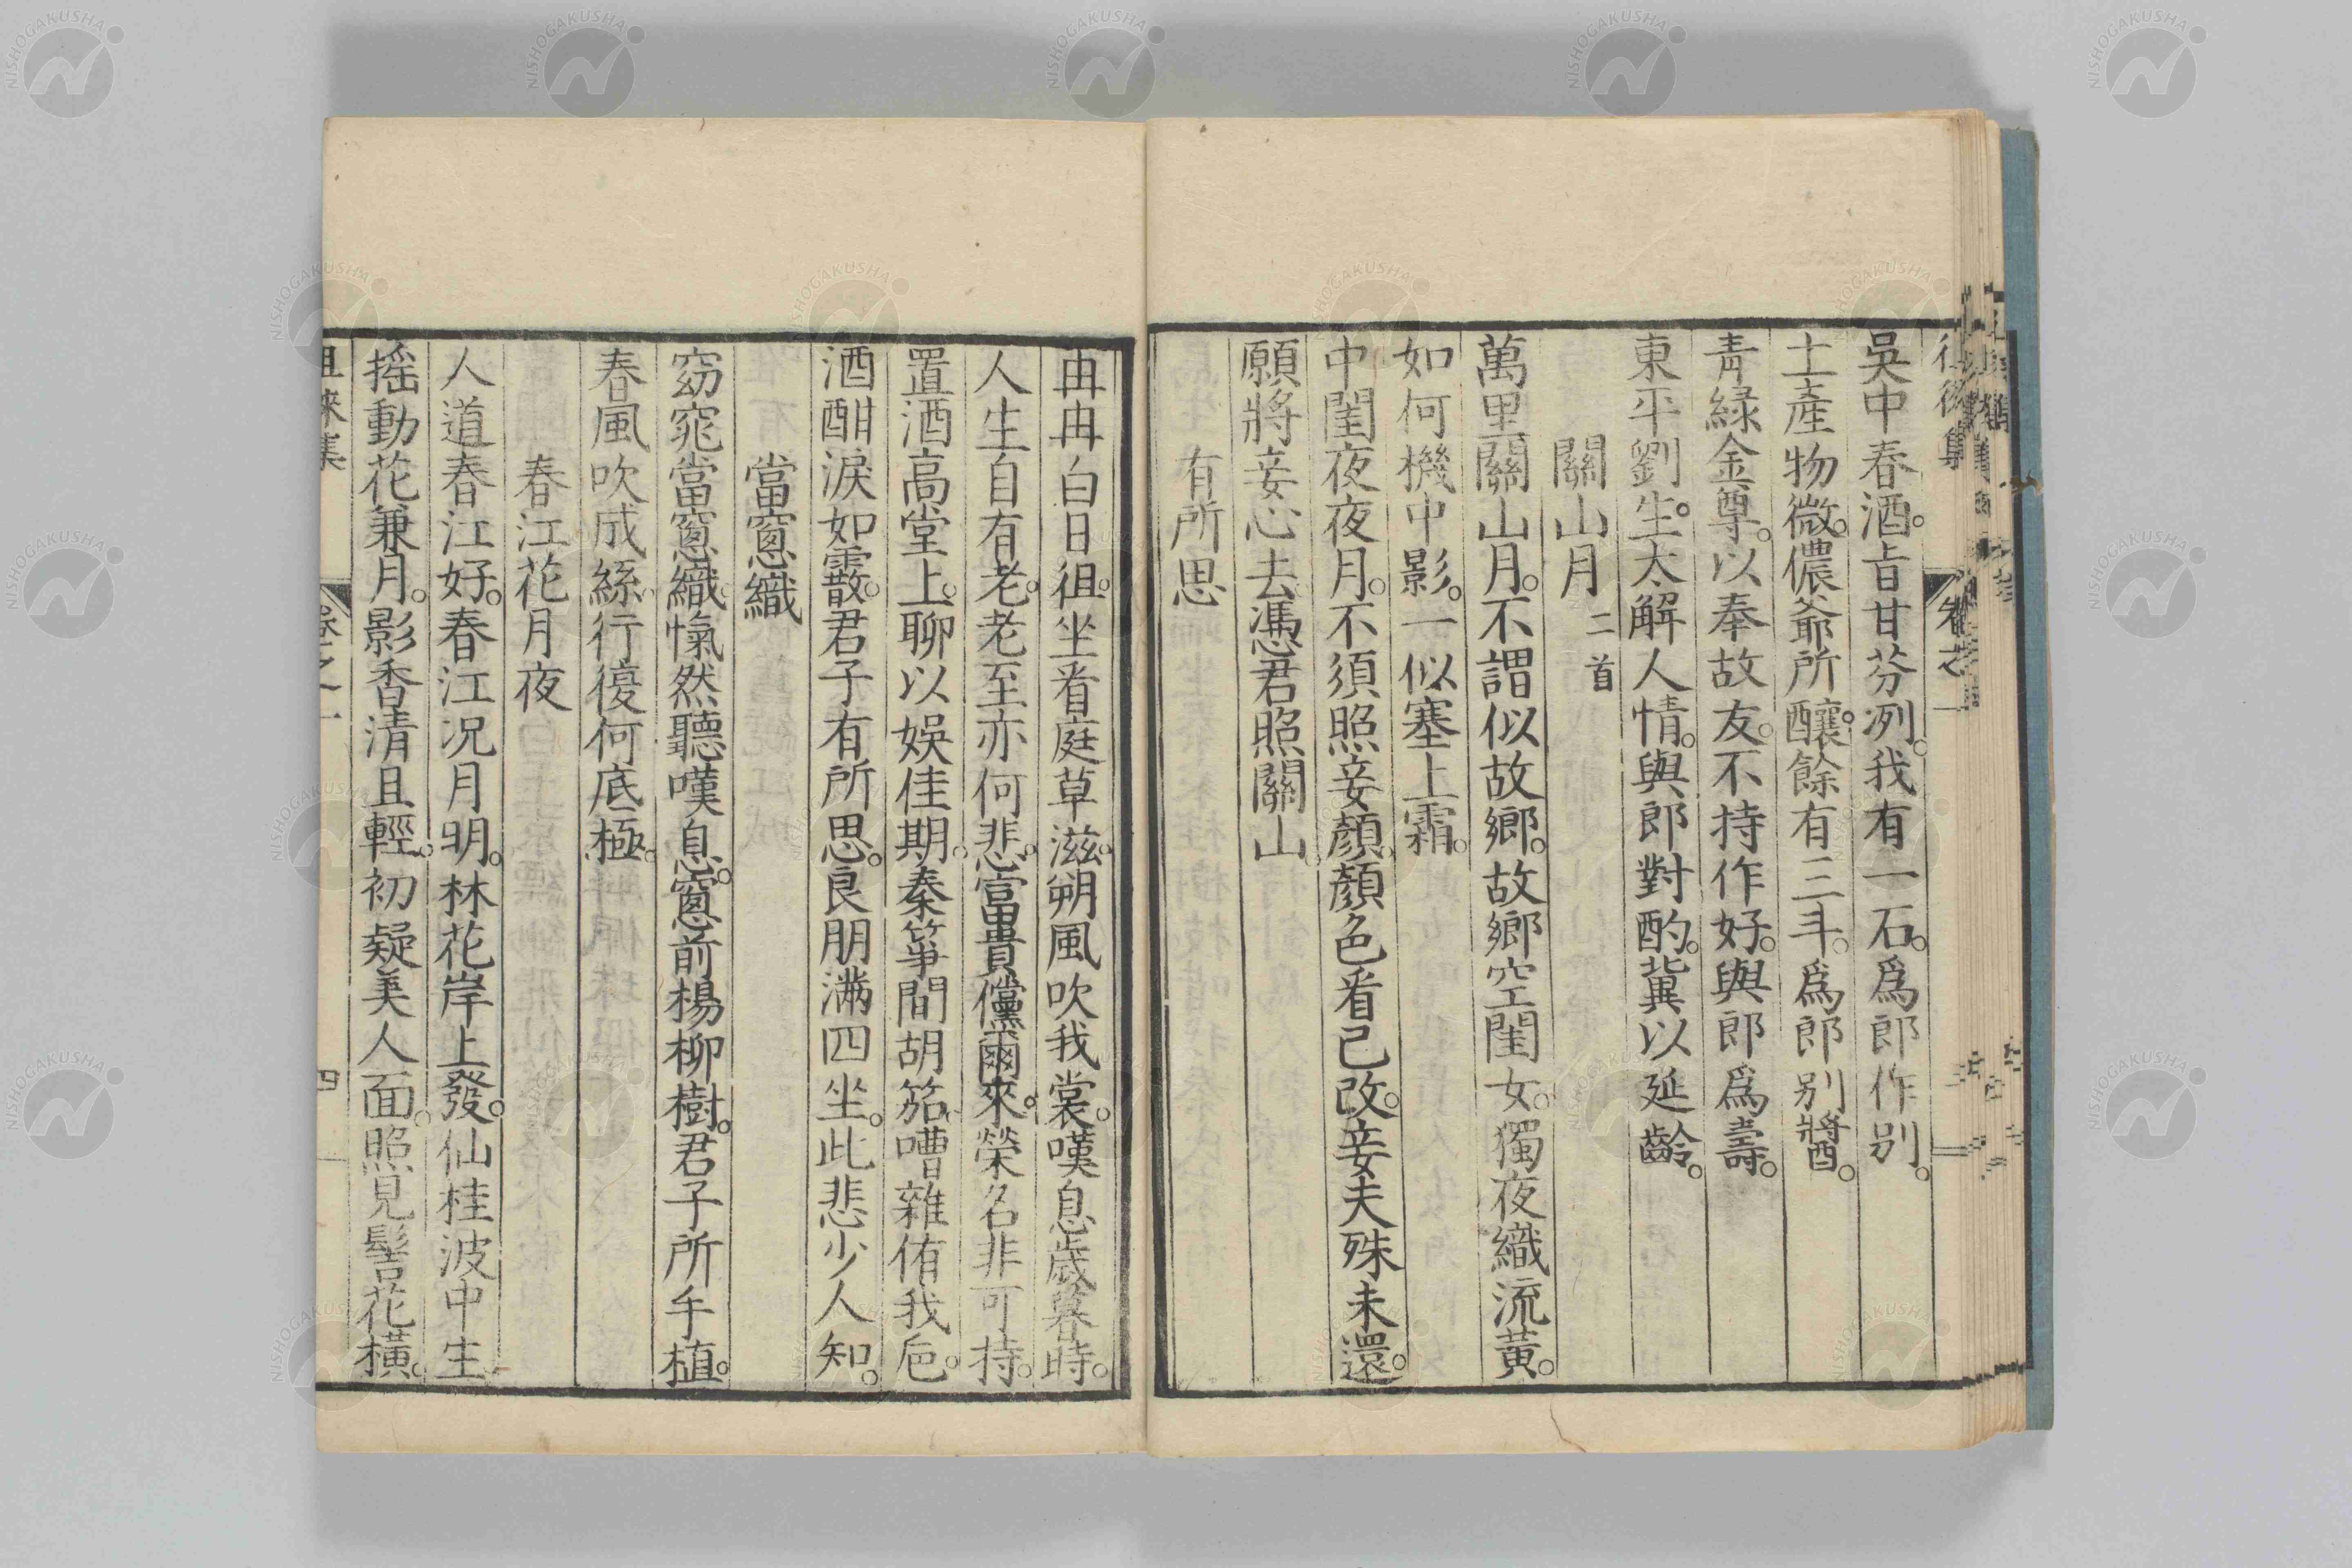 吳中春酒。旨甘芬冽。我有一石。爲郎作别。
土產物微。儂爺所釀。餘有三斗。爲郎别醬。
青緑金尊。以奉故友。不持作好。與郎爲壽。
東平劉生。太解人情。與郎對酌。冀以延齡。
關山月 二首
萬里關山月。不謂似故鄉。故鄉空閨女。獨夜織流黃。
如何機中影。一似塞上霜。
中閨夜夜月。不須照妾顏。顏色看已改。妾夫殊未還。
願將妾心去。憑君照關山。
有所思
冉冉白日徂。坐看庭草滋。朔風吹我裳。嘆息歲暮時。
人生自有老。老至亦何悲。富貴儻爾來。榮名非可持。
置酒高堂上。聊以娛佳期。秦箏間胡笳。嘈雜侑我巵。
酒酣淚如霰。君子有所思。良朋滿四坐。此悲少人知。
當窻織
窈窕當窻織。愾然聽嘆息。窻前楊柳樹。君子所手植。
春風吹成絲。行擾何底極。
春江花月夜
人道春江好。春江況月明。林花岸上發。仙桂波中生
摇動花兼月。影香清且輕。初疑美人面。照見髻花橫。
徂徠集 卷之一 四